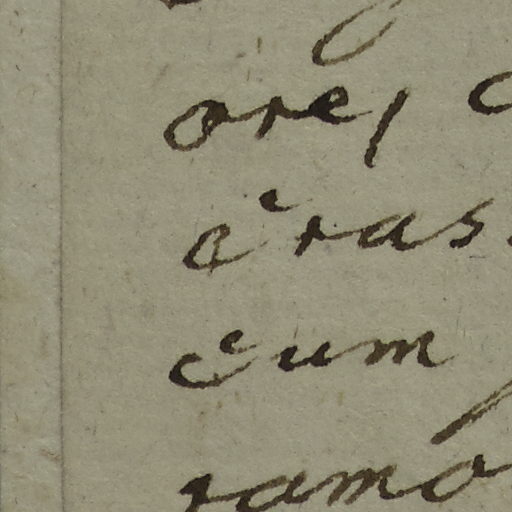 ore,
cras
cum
ramo